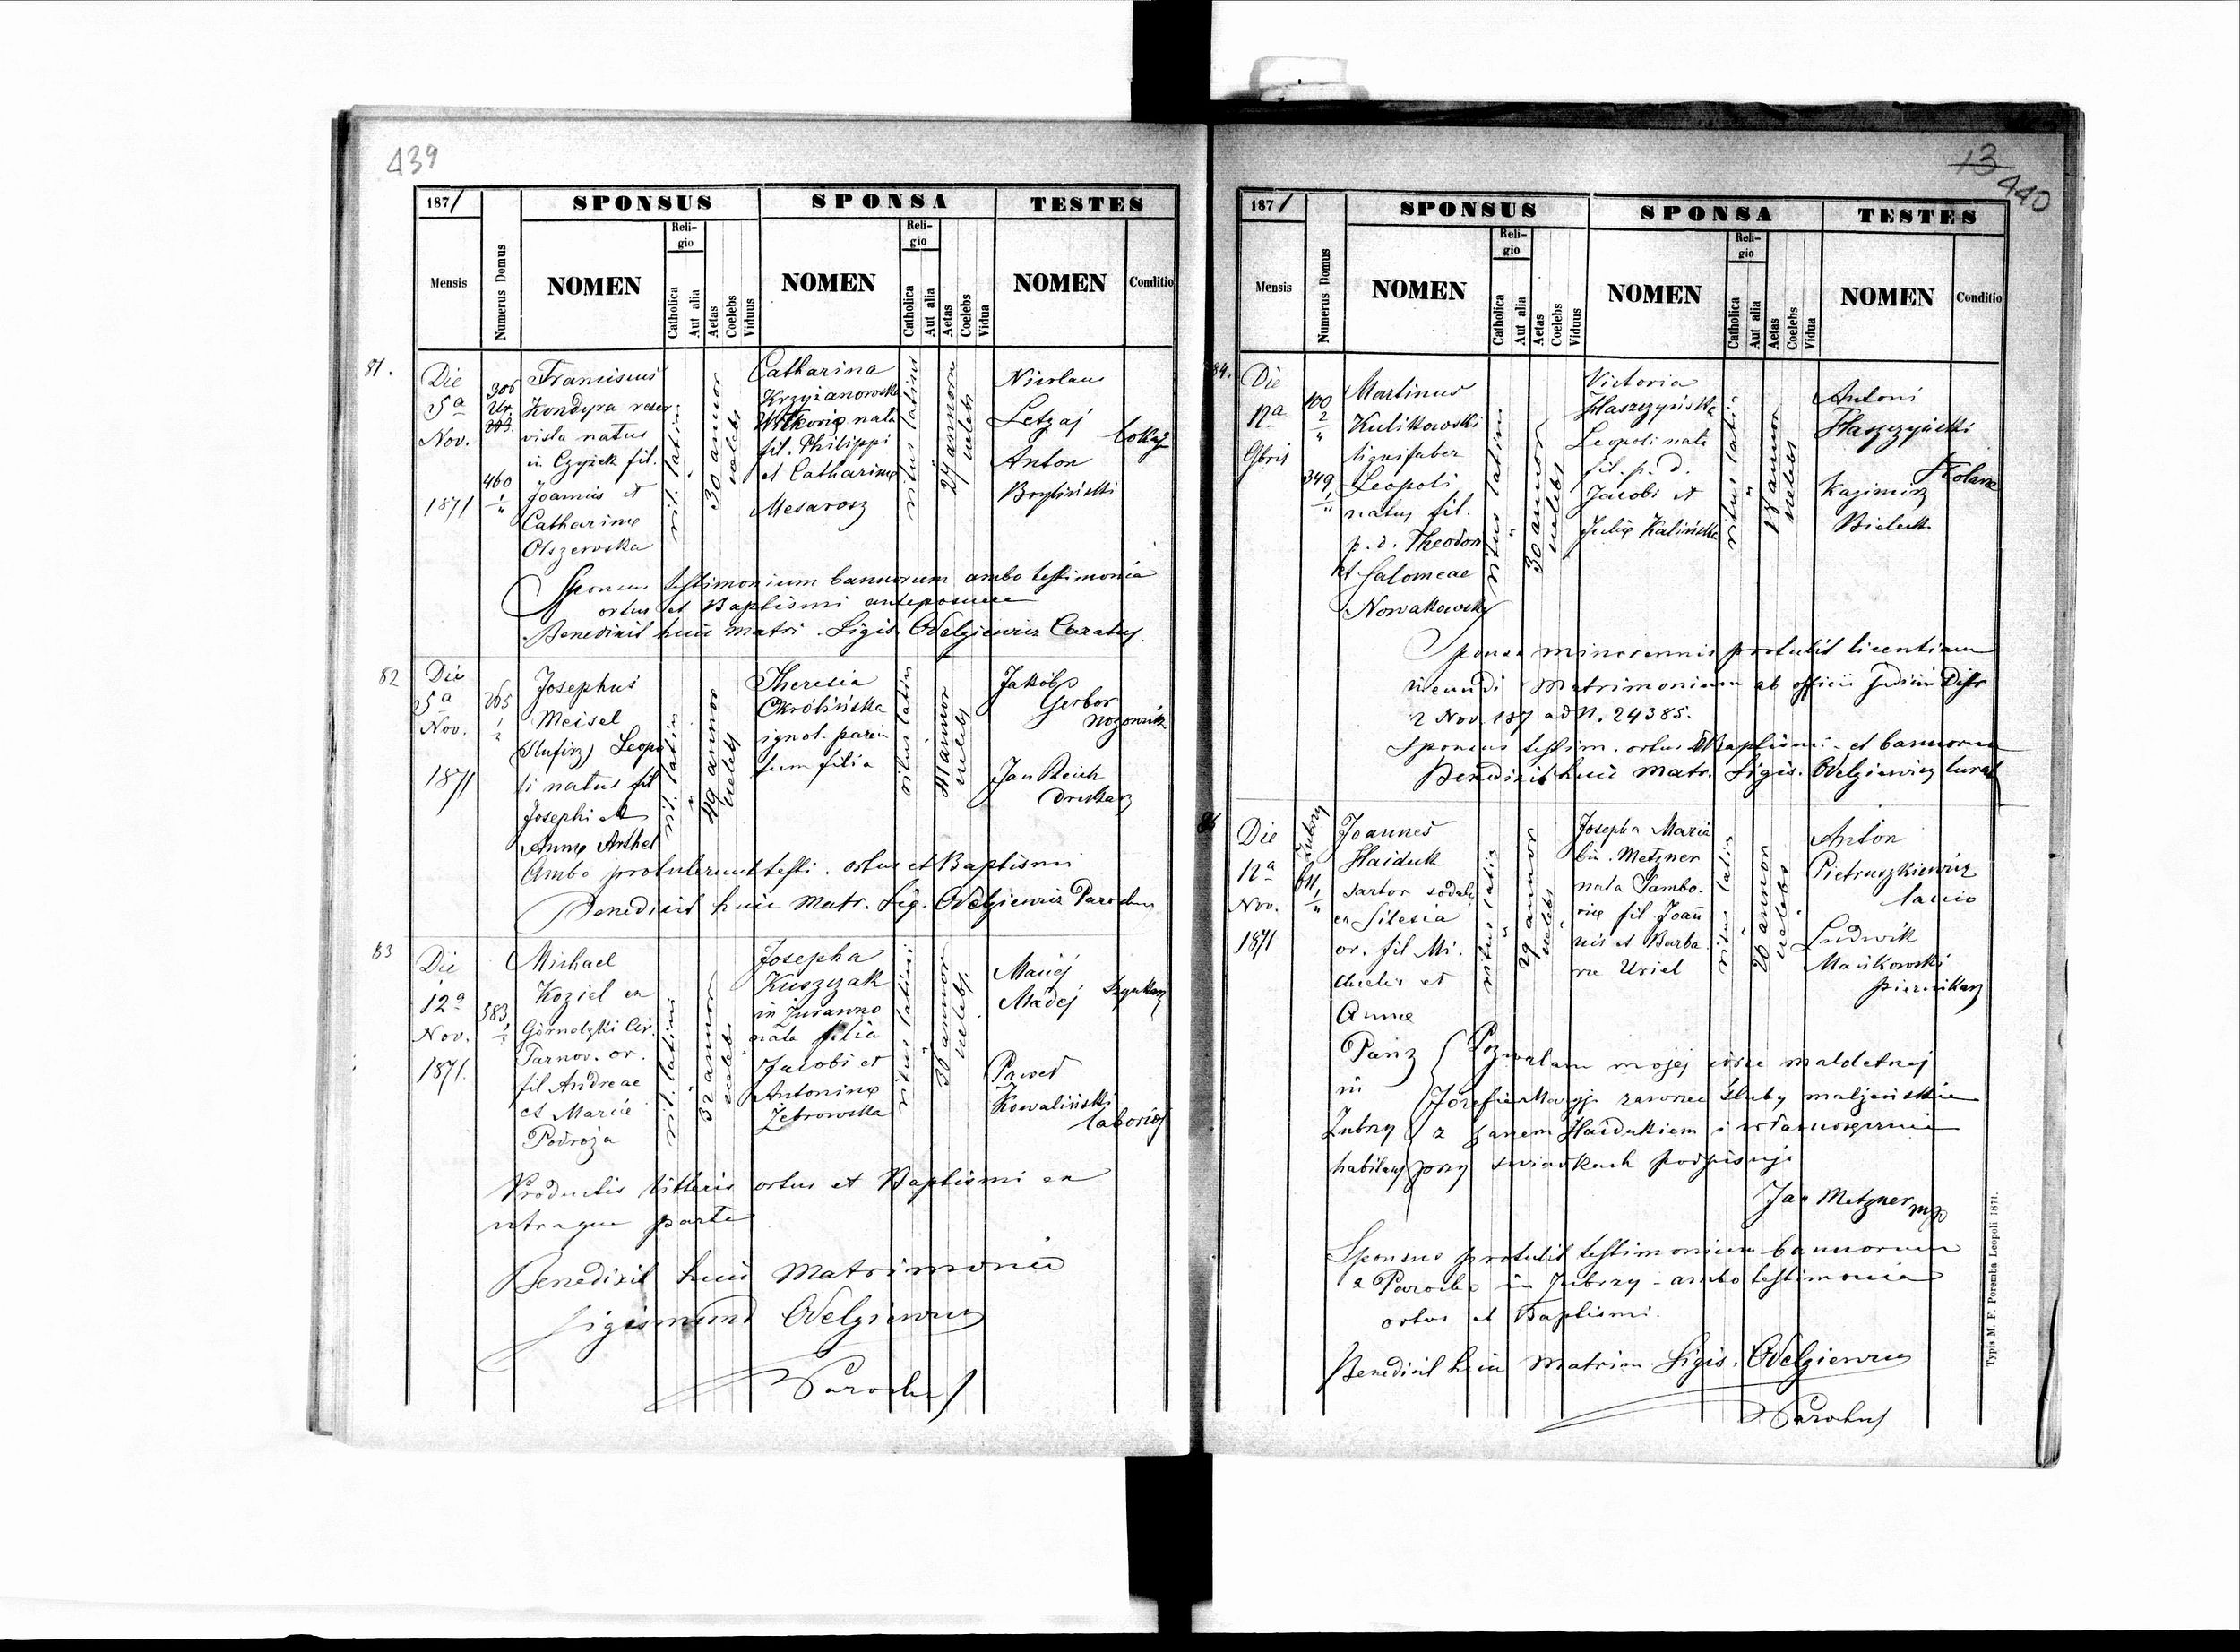 439
1871
SPONSUS
SPONSA
TESTES
Mensis
Numerus Domus
NOMEN
Religio
Catholica
Aut alia
Aetas
Coelebs
Viduus
NOMEN
Religio
Catholica
Aut alia
Aetas
Coelebs
Vidua
NOMEN
Conditio
81.
Die
5a
Nov.
1871
306
460
1
Franciscus
Kondyra reser-
vista natus
in Czyżek fil.
Joannis et
Catharinę
Olszewska
rit. latini
30 annor
coelebs
Catharina
Krzyżanowska
Witkovię nata
fil. Philippi
et Catharinę
Mesarosz
ritus latini
24 annorum
coelebs
Nicolaus
Letzaj
Anton
Bryliński
Sponsus testimonium bannorum ambo testimonia
ortus et Baptismi anteposuere
Benedixit huic matri. Sigis. Odelgiewicz Curatus.
82
Die
5a
Nov.
1871
265
1
2
Josephus
Meisel
Leopo
li natus fil
Josephi et
Annę Arthel
rit. latini
49 annor
coelebs
Theresia
Okrólińska
ignot. paren
tum filia
ritus latini
coelebs
Jakób
Gerber
nożownik
Jan Reich
Drukarz
Ambo protulerunt testi. ortus et Baptismi
Benedixit huic Matr. Sig. Odelgiewicz Parochus
83
Die
12a
Nov.
1871.
383
1
2
Michael
Koziel ex
Tarnov. or.
fil Andreae
et Marię
Podroża
rit. latini
32 annor
coelebs
Josepha
Kuszczak
in Żurawno
nata filia
Jacobi et
Antoninę
Żebrowska
ritus latini
30 annor
coelebs
Maciej
Madej
Paweł
Kowaliński
Productis litteris ortus et Baptismi ex
utraque parte
Benedixit huic Matrimonio
Sigismund Odelgiewicz
Parochus
13
440
1871
SPONSUS
SPONSA
TESTES
Mensis
Numerus Domus
NOMEN
Religio
Catholica
Aut alia
Aetas
Coelebs
Viduus
NOMEN
Religio
Catholica
Aut alia
Aetas
Coelebs
Vidua
NOMEN
Conditio
84.
Die
12a
9bris
100
2
349
1
Martinus
Kulikowski
lignifaber
Leopoli
natus fil.
p. d. Theodori
et Salomeae
Nowakowska
ritus latini
30 annor
coelebs
Victoria
Haszczyńska
Leopoli nata
fil. p. d.
Jacobi et
Julię Kalińska
ritus latini
18 annor
coelebs
Antoni
Haszczyński
Kazimirz
Bielecki
Sponsa minorennis protulit licentiam
ineundi Matrimonium ab officii Judicii Distr
2 Nov. 187 ad N. 24385.
Sponsus testim. ortus Baptismi et bannorum
Benedixit huic Matr. Sigis. Odelgiewicz Curat
Die
12a
Nov.
1871
Zubrzy
Joannes
Haiduk
sartor sodalis
ex Silesia
or. fil Mi.
chaelis et
Annę
ritus latin
29 annor
coelebs
Josepha Maria
bin. Metzner
nata Sambo.
rię fil Joan
nis et Barba
rę Uriel
ritus latin
20 annor
coelebs
Anton
Pietruszkiewicz
lanio
Ludwik
Mańkowski
piernikarz
in
Zubrzy
habitans
Pozwalam mojej córce małoletniej
Józefie Maryi zawrzeć śluby małżeńskie
z Janem Haidukiem i własnoręcznie
przy świadkach podpisuję
Jan Metzner mp
Sponsus protulit testimonium bannorum
a Parocho in Zubrzy - ambo testimonia
ortus et Baptismi.
Benedixit huic Matrim. Sigis. Odelgiewicz
Parochus
Typis M. F. Poremba Leopoli 1871.